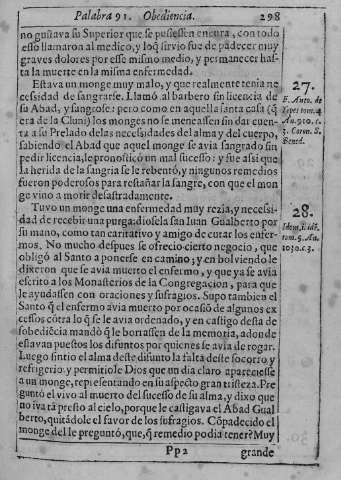 Palabra 91. Obediencia. 298
no gustava su Superior que se pusiessen encura, con todo
esso llamaron al medico, y loq̃ sirvio fue de padecer muy
graves dolores por esse mismo medio, y permanecer has-
ta la muerte en la misma enfermedad.
Estava un monge muy malo, y que realmente tenia ne
cessidad de sangrarse. Llamò al barbero sin licencia de
su Abad, y sangrose: pero como en aquella santa casa (q̃
era de la Cluni) los monges no se meneassen sin dar cuen-
ta a su Prelado de las necessidades del alma y del cuerpo,
sabiendo el Abad que aquel monge se avia sangrado sin
pedir licencia, le pronosticò un mal sucesso: y fue assi que
la herida de la sangria se le rebentò, y ningunos remedios
fueron poderosos para restañar la sangre, con que el mon
ge vino a morir desastradamente.
Tuvo un monge una enfermedad muy rezia, y necessi-
dad de recebir una purga diosela san Iuan Gualberto por
su mano, como tan caritativo y amigo de curar los enfer-
mos. No mucho despues se ofrecio cierto negocio, que
obligò al Santo a ponerse en camino; y en bolviendo le
dixeron que se avia muerto el enfermo, y que ya se avia
escrito a los Monasterios de la Congregacion, para que
le ayudassen con oraciones y sufragios. Supo tambien el
Santo q̃ el enfermo avia muerto por ocasiõ de algunos ex
cessos cõtra lo q̃ se le avia ordenado, y en castigo desta de
sobediẽcia mandò q̃ le borrassen de la memoria, adonde
estavan puestos los difuntos por quienes se avia de rogar.
Luego sintio el alma deste difunto la falta deste socorro y
refrigerio. y permitiole Dios que un dia claro apareciesse
a un monge, representando en su aspecto gran tristeza. Pre
guntò el vivo al muerto del sucesso de su alma, y dixo que
no iva tã presto al cielo, porque le castigava el Abad Gual
berto, quitãdole el favor de los sufragios. Cõpadecido el
monge del le preguntò, que, q̃ remedio podia tener? Muy
Pp2 grande
27.
F. Anto. de
Yepes tom. 4
Añ. 910. c.
3. Coron. S.
Bened.
28.
Idem, tom. 5. Añ.
1030. c. 3.